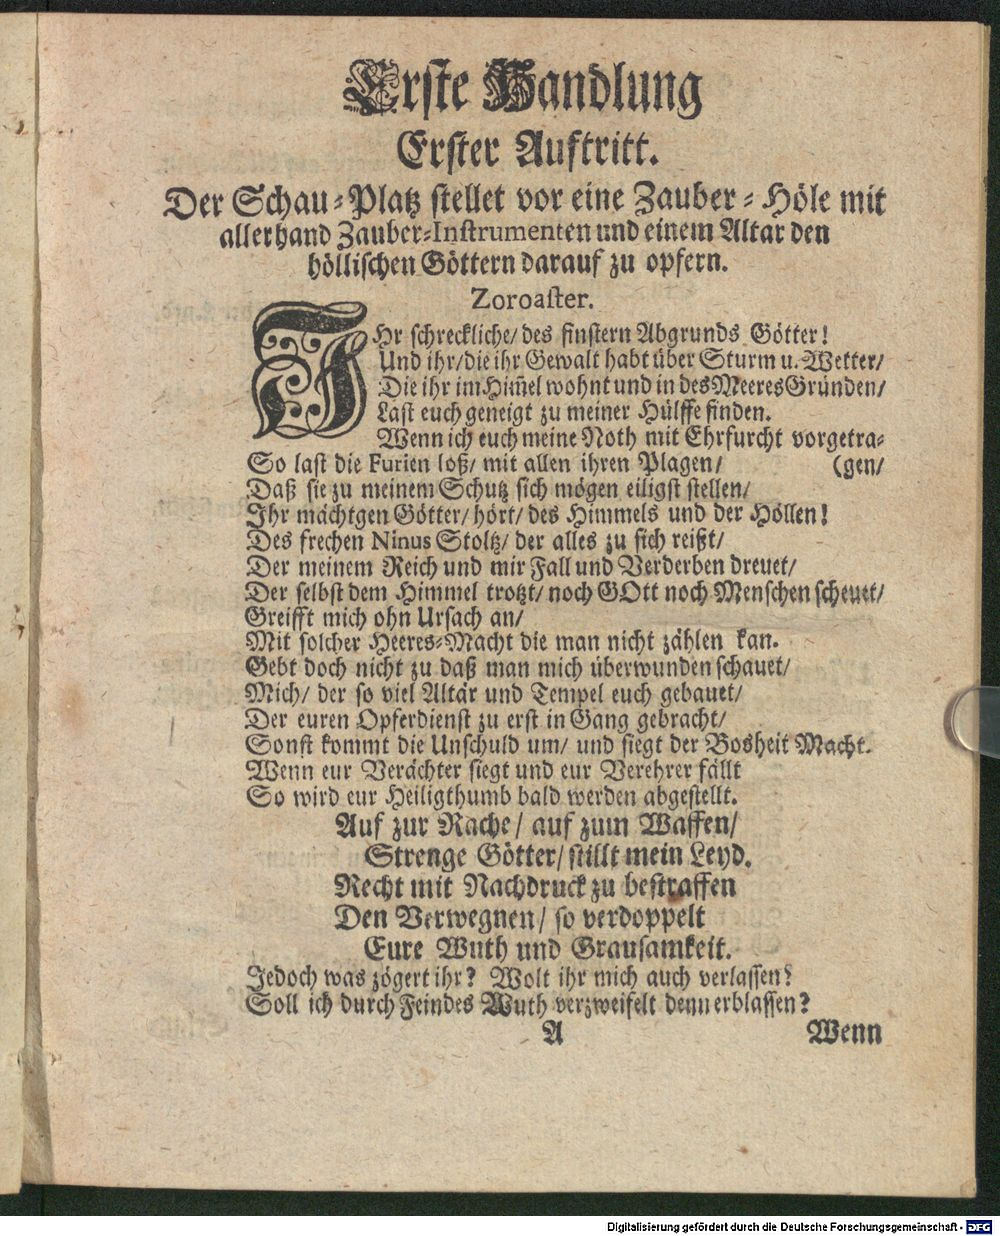 Erste Handlung
Erster Auftritt.
Der Schau-Platz stellet vor eine Zauber-Höle mit
allerhand Zauber-Instrumenten und einem Altar den
höllischen Göttern darauf zu opfern.
Zoroaster.
IHr schreckliche/ des finstern Abgrunds Götter!
Und ihr/ die ihr Gewalt habt über Sturm u. Wetter/
Die ihr im Him̄el wohnt und in des Meeres Gründen/
Last euch geneigt zu meiner Hülffe finden.
Wenn ich euch meine Noth mit Ehrfurcht vorgetra-
So last die Furien loß/ mit allen ihren Plagen/ (gen/
Daß sie zu meinem Schutz sich mögen eiligst stellen/
Ihr mächtgen Götter/ hört/ des Himmels und der Höllen!
Des frechen Ninus Stoltz/ der alles zu sich reißt/
Der meinem Reich und mir Fall und Verderben dreuet/
Der selbst dem Himmel trotzt/ noch GOtt noch Menschen scheuet/
Greifft mich ohn Ursach an/
Mit solcher Heeres-Macht die man nicht zählen kan.
Gebt doch nicht zu daß man mich überwunden schauet/
Mich/ der so viel Altär und Tempel euch gebauet/
Der euren Opferdienst zu erst in Gang gebracht/
Sonst kommt die Unschuld um/ und siegt der Bosheit Macht.
Wenn eur Verächter siegt und eur Verehrer fällt
So wird eur Heiligthumb bald werden abgestellt.
Auf zur Rache/ auf zum Waffen/
Strenge Götter/ stillt mein Leyd.
Recht mit Nachdruck zu bestraffen
Den Verwegnen/ so verdoppelt
Eure Wuth und Grausamkeit.
Jedoch was zögert ihr? Wolt ihr mich auch verlassen?
Soll ich durch Feindes Wuth verzweifelt denn erblassen?
A Wenn
Digitalisierung gefördert durch die Deutsche Forschungsgemeinschaft - DFG